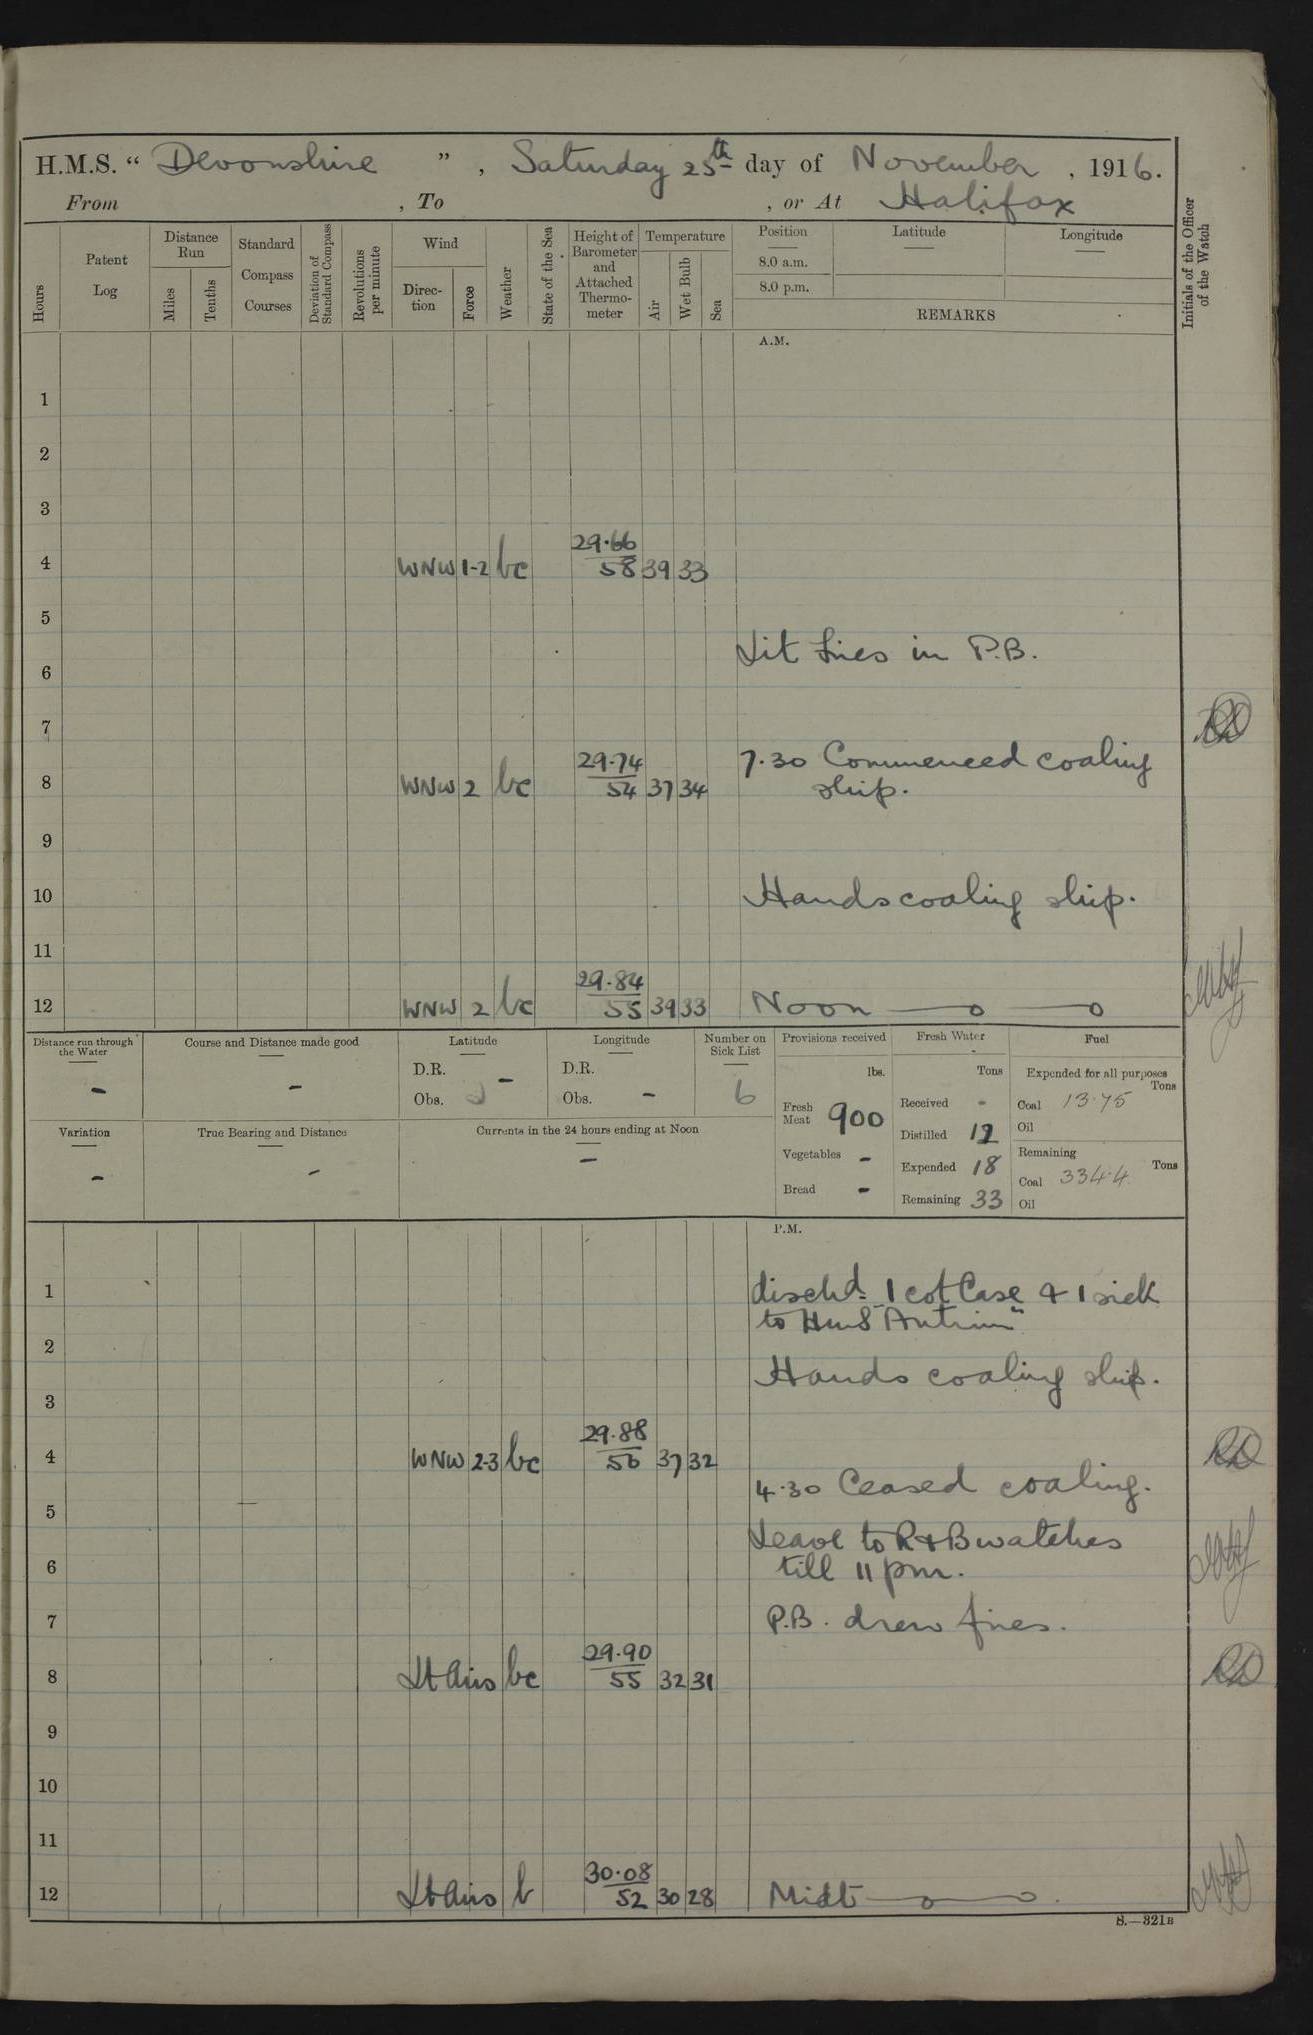 H.M.S. “ Devonshire ” , Saturday 25th day of November , 1916.
From , To , or At Halifax
Hours
Patent Log
Distance Run
Miles
Tenths
Standard Compass Courses
Deviation of Standard Compass
Revolutions per minute
Wind
Direc- tion
Force
Weather
State of the Sea
Height of Barometer and Attached Thermo- meter
Temperature
Air
Wet Bulb
Sea
Position
8.0 a.m.
8.0 p.m.
Latitude
Longitude
REMARKS
Initials of the Officer of the Watch
A.M.
1
2
3
4 WNW 1-2 bc 29.66 58 39 33
5
Lit fires in P.B.
6
7
7.30 Commenced coaling
8 WNW 2 bc 29.74 54 37 34 ship.
9
10 Hands coaling ship.
11
12 WNW 2 bc 29.84 55 39 33 Noon
Distance run through the Water
-
Course and Distance made good
-
Latitude
D.R. -
Obs.
Longitude
D.R.
Obs. -
Number on Sick List
6
Provisions received
lbs.
Fresh Meat 900
Vegetables -
Bread -
Fresh Water
Tons
Received -
Distilled 12
Expended 18
Remaining 33
Fuel
Expended for all purposes
Tons
Coal 13.75
Oil
Remaining
Tons
Coal 334.4
Oil
Variation
-
True Bearing and Distance
-
Currents in the 24 hours ending at Noon
-
P.M.
1 dischd. 1 cot Case & 1 sick
to HMS "Antrim"
2
Hands coaling ship.
3
4 WNW 2-3 bc 29.88 56 37 32
4.30 Ceased coaling.
5
Leave to R & B watches
6 till 11 pm.
7 P.B. drew fires.
8 Lt Airs bc 29.90 55 32 31
9
10
11
12 Lt Airs b 30.08 52 30 28 Midt
S.—321B